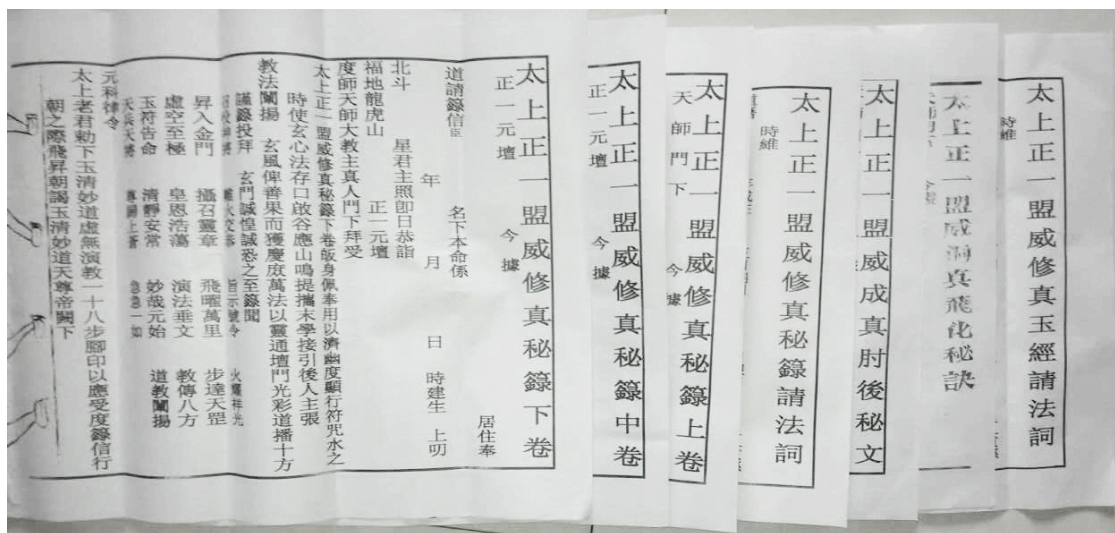 太上正一盟威修真玉經請法詞
時維
太上正一盟威洞真飛化秘訣
太上正一盟威成真肘後秘文
太上正一盟威修真秘籙請法詞
時維
太上正一盟威修真秘籙上卷
天師門下 今據
太上正一盟威修真秘籙中卷
正一元壇 今據
太上正一盟威修真秘籙下卷
正一元壇 今據
居住奉
道請籙信臣 名下本命係
年 月 日 時建生 上叨
北斗 星君主照卽日恭詣
福地龍虎山 正一元壇
度師天師大教主真人門下拜受
太上正一盟威修真秘籙下卷皈身佩奉用以濟幽度顯行符咒水之
時使玄心法存口啟谷應山鳴提攜末學接引後人主張
教法闡揚 玄風俾善果而獲慶度萬法以靈通壇門光彩道播十方
謹籙投拜 玄門誠惶誠恐之至籙聞
旨示號令 火耀祥光
昇入金門 攝召靈章 飛曜萬里 步達天罡
虛空至極 皇恩浩蕩 演法垂文 教傳八方
玉符告命 清靜安常 妙哉元始 道教闡揚
天兵天將 上蒼 急急一如
元科律令
太上老君勅下玉清妙道虛無演教一十八步腳印以應受度籙信行
朝之際飛昇朝謁玉清妙道天尊帝闕下